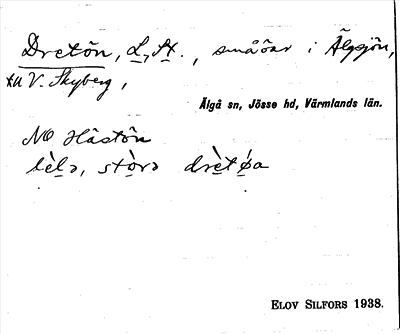 Dretön, L., St., småöar i Älgsjön,
till V. Skyberg,
Älgå sn, Jösse hd, Värmlands län.
NO Hästön
lè̱lə, stò̱rə drèt ǿa
ELOV SILFORS 1938.